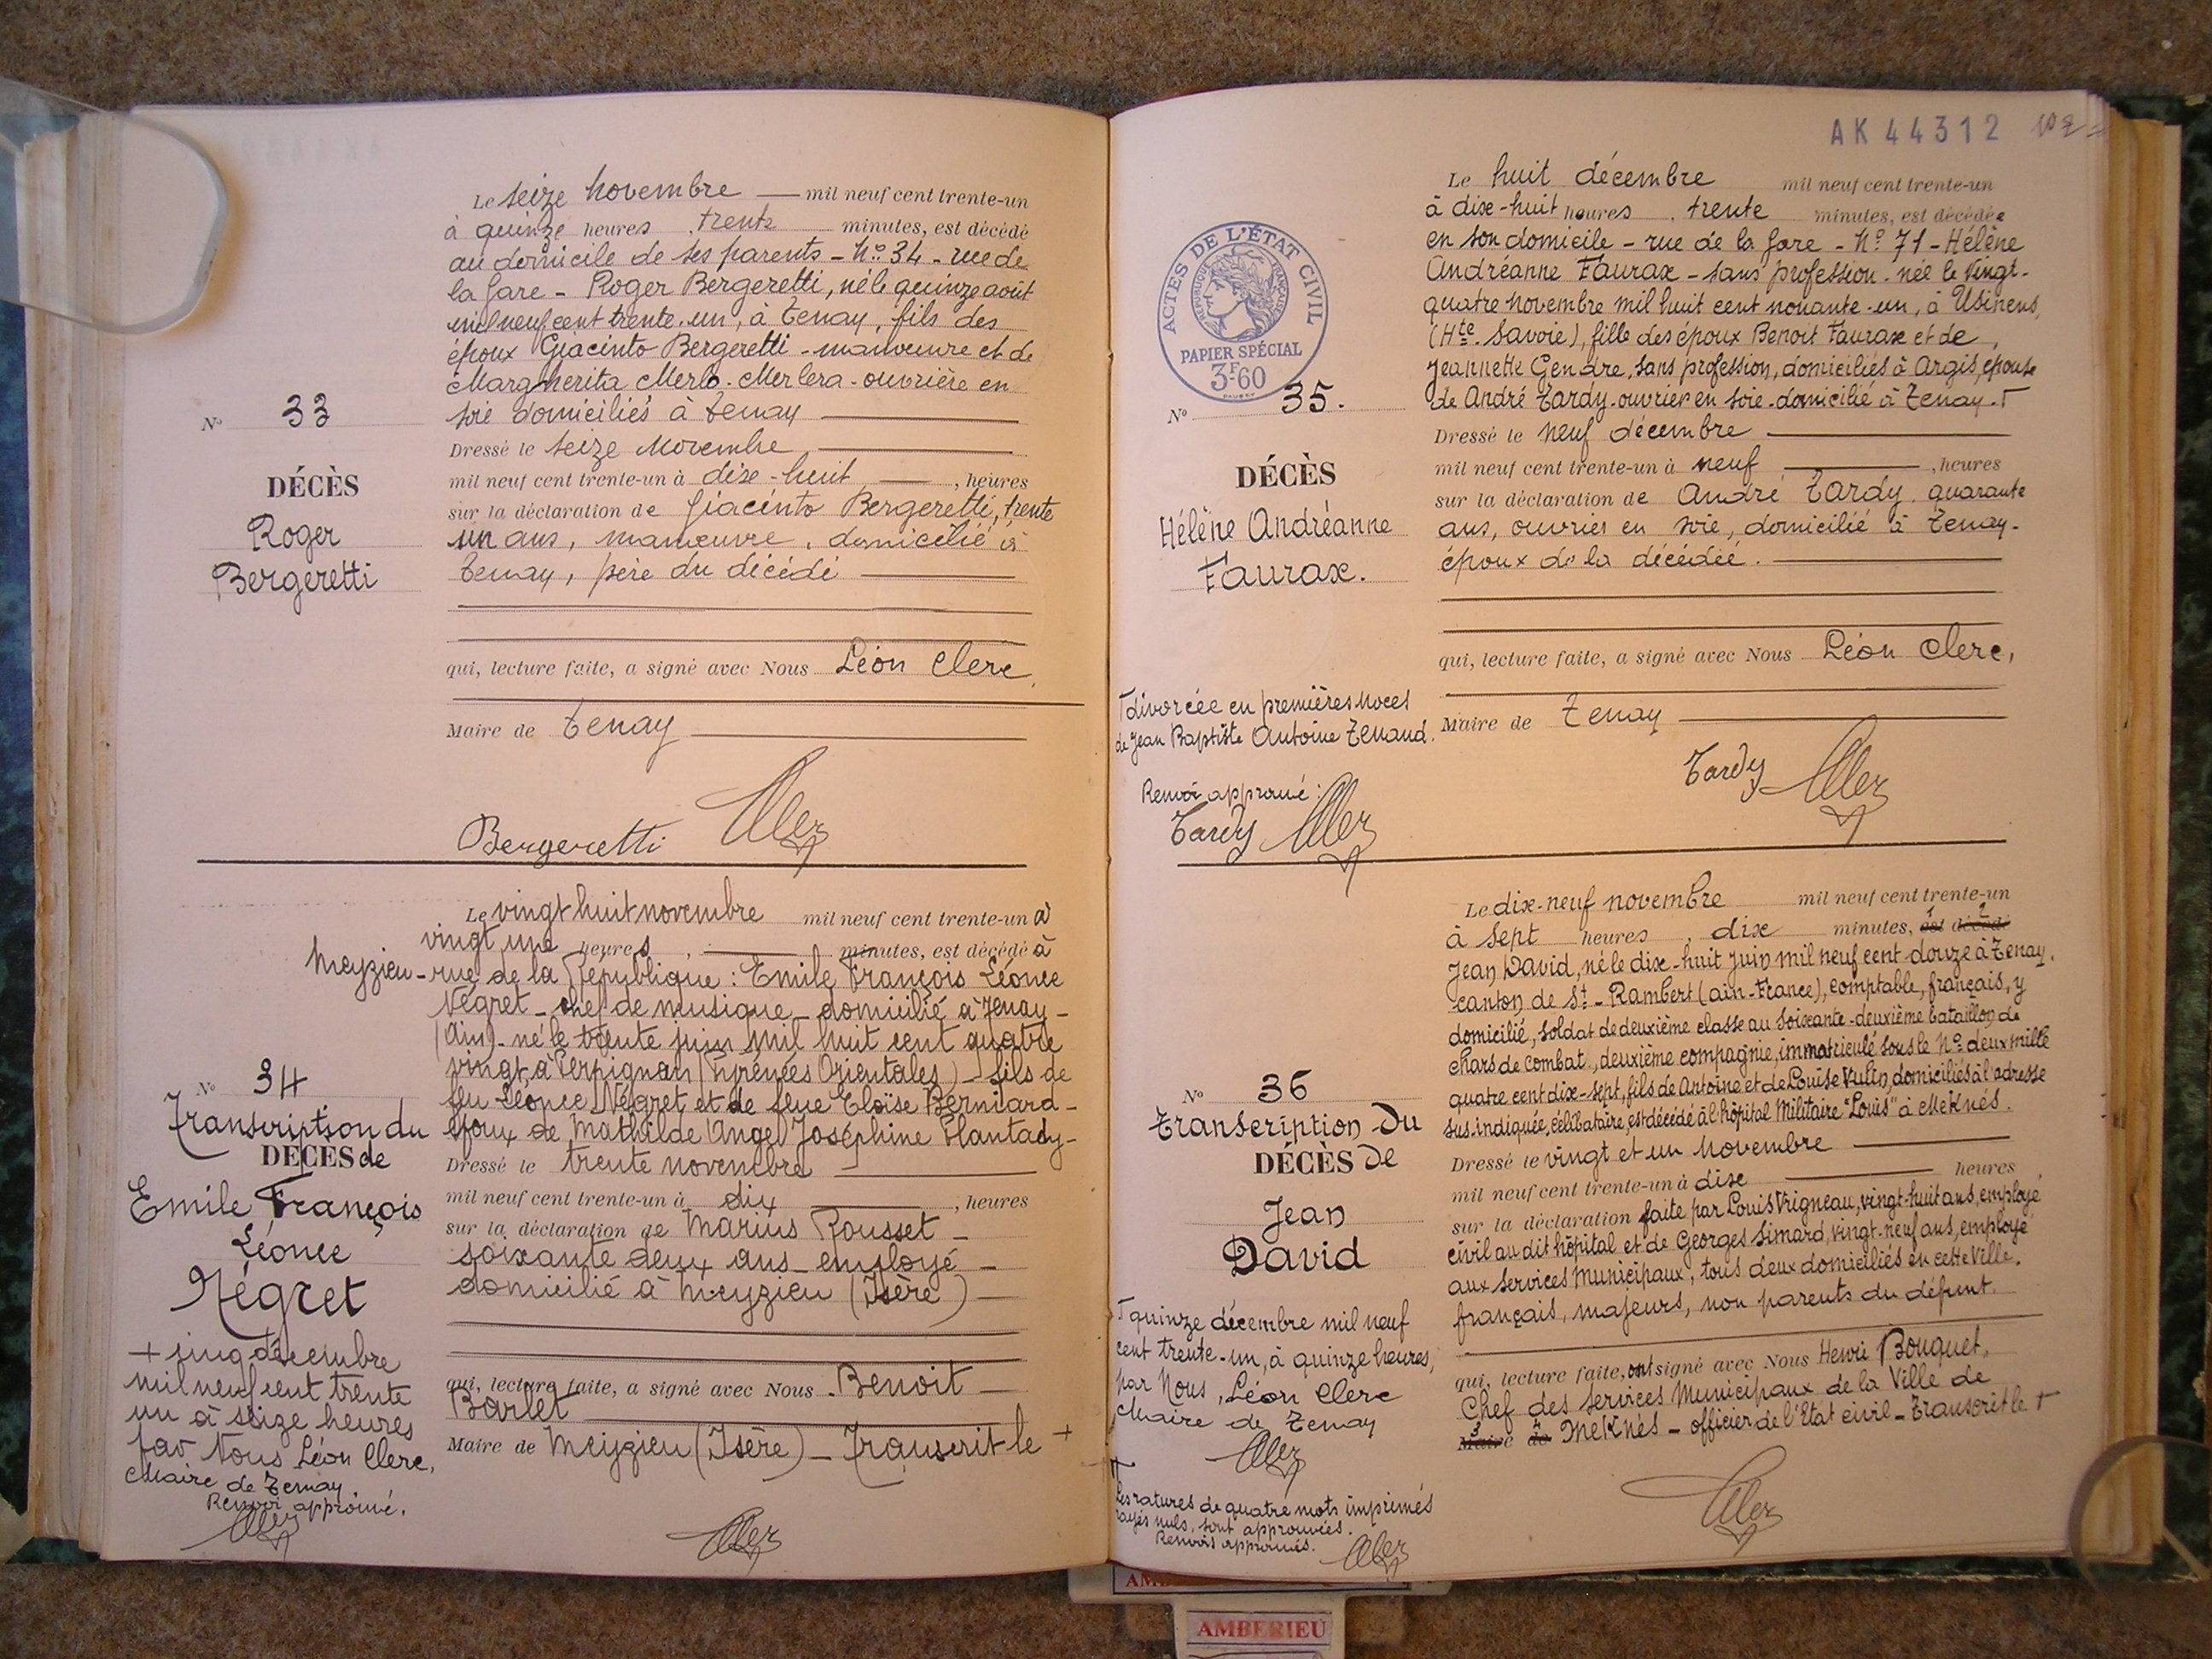 Le seize novembre — mil neuf cent trente-un
à quinze heures, trente minutes, est décédé
au domicile de ses parents - N° 34 - rue de
la gare - Roger Bergeretti, né le quinze août
mil neuf cent trente-un, à Tenay, fils des
époux Giacinto Bergeretti - manœuvre et de
Margherita Merlo-Merlera - ouvrière en
N° 33
soie domiciliés à Tenay
Dressé le seize Novembre
mil neuf cent trente-un à dix-huit —, heures
DÉCÈS
sur la déclaration de Giacinto Bergeretti, trente
Roger
un ans, manœuvre, domicilié à
Bergeretti
Tenay, père du décédé
qui, lecture faite, a signé avec Nous Léon Clerc,
Maire de Tenay
Bergeretti
Le vingt huit novembre mil neuf cent trente-un à
vingt une heures, — minutes, est décédé à
Meyzieu - rue de la République : Emile François Léonce
Négret - chef de musique - domicilié à Tenay -
(Ain) - né le trente juin mil huit cent quatre
vingt, à Perpignan (Pyrénées Orientales) - fils de
N° 34
feu Léonce Négret et de feue Eloïse Berniard -
Transcription du
époux de Mathilde Ange Joséphine Plantady -
DÉCÈS de
Dressé le trente novembre
Emile François
mil neuf cent trente-un à dix, heures
Léonce
sur la déclaration de Marius Rousset -
Négret
soixante deux ans - employé -
domicilié à Meyzieu (Isère) -
+ cinq décembre
mil neuf cent trente
un à seize heures
par Nous Léon Clerc,
Maire de Tenay
Renvoi approuvé.
qui, lecture faite, a signé avec Nous - Benoit -
Barlet
Maire de Meyzieu (Isère) - Transcrit le +
AK 44312
ACTES DE L'ÉTAT CIVIL
RÉPUBLIQUE FRANÇAISE
PAPIER SPÉCIAL
3F60
Le huit décembre mil neuf cent trente-un
à dix-huit heures, trente minutes, est décédée
en son domicile - rue de la gare - N° 71 - Hélène
Andréanne Faurax - sans profession - née le vingt-
quatre novembre mil huit cent nonante-un, à Usinens,
(Hte Savoie), fille des époux Benoit Faurax et de
Jeannette Gendre, sans profession, domiciliés à Argis, épouse
N° 35.
de André Tardy - ouvrier en soie - domicilié à Tenay. T
Dressé le neuf décembre
DÉCÈS
mil neuf cent trente-un à neuf —, heures
Hélène Andréanne
sur la déclaration de André Tardy, quarante
Faurax.
ans, ouvrier en soie, domicilié à Tenay -
époux de la décédée.
qui, lecture faite, a signé avec Nous Léon Clerc,
T divorcée en premières noces
de Jean Baptiste Antoine Tenand.
Maire de Tenay
Renvoi approuvé :
Tardy
Tardy
Le dix-neuf novembre mil neuf cent trente-un
à sept heures, dix minutes, est décédé
Jean David, né le dix-huit Juin mil neuf cent douze à Tenay,
canton de St-Rambert (Ain-France), comptable, français, y
domicilié, soldat de deuxième classe au Soixante-deuxième bataillon de
chars de combat, deuxième compagnie, immatriculé sous le N° deux mille
N° 36
quatre cent dix-sept, fils de Antoine et de Louise Vulin, domiciliés à l'adresse
Transcription du
sus-indiquée, célibataire, est décédé à l'hôpital Militaire "Louis" à Meknès.
DÉCÈS de
Dressé le vingt et un Novembre
mil neuf cent trente-un à dix — heures
Jean
sur la déclaration faite par Louis Vrigneau, vingt-huit ans, employé
David
civil au dit hôpital et de Georges Simard, vingt-neuf ans, employé
aux services Municipaux, tous deux domiciliés en cette Ville,
français, majeurs, non parents du défunt.
T quinze décembre mil neuf
cent trente-un, à quinze heures,
par Nous, Léon Clerc
Maire de Tenay
qui, lecture faite, ont signé avec Nous Henri Bouquet,
Chef des Services Municipaux de la Ville de
Maire de Meknès - officier de l'Etat civil - Transcrit le T
Les ratures de quatre mots imprimés
rayés nuls, sont approuvées.
Renvois approuvés.
AMBERIEU